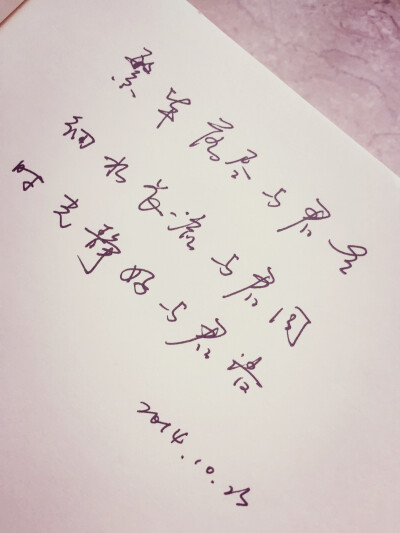 繁华落尽与君老
细水长流与君同
时光静好与君语
2014.10.23